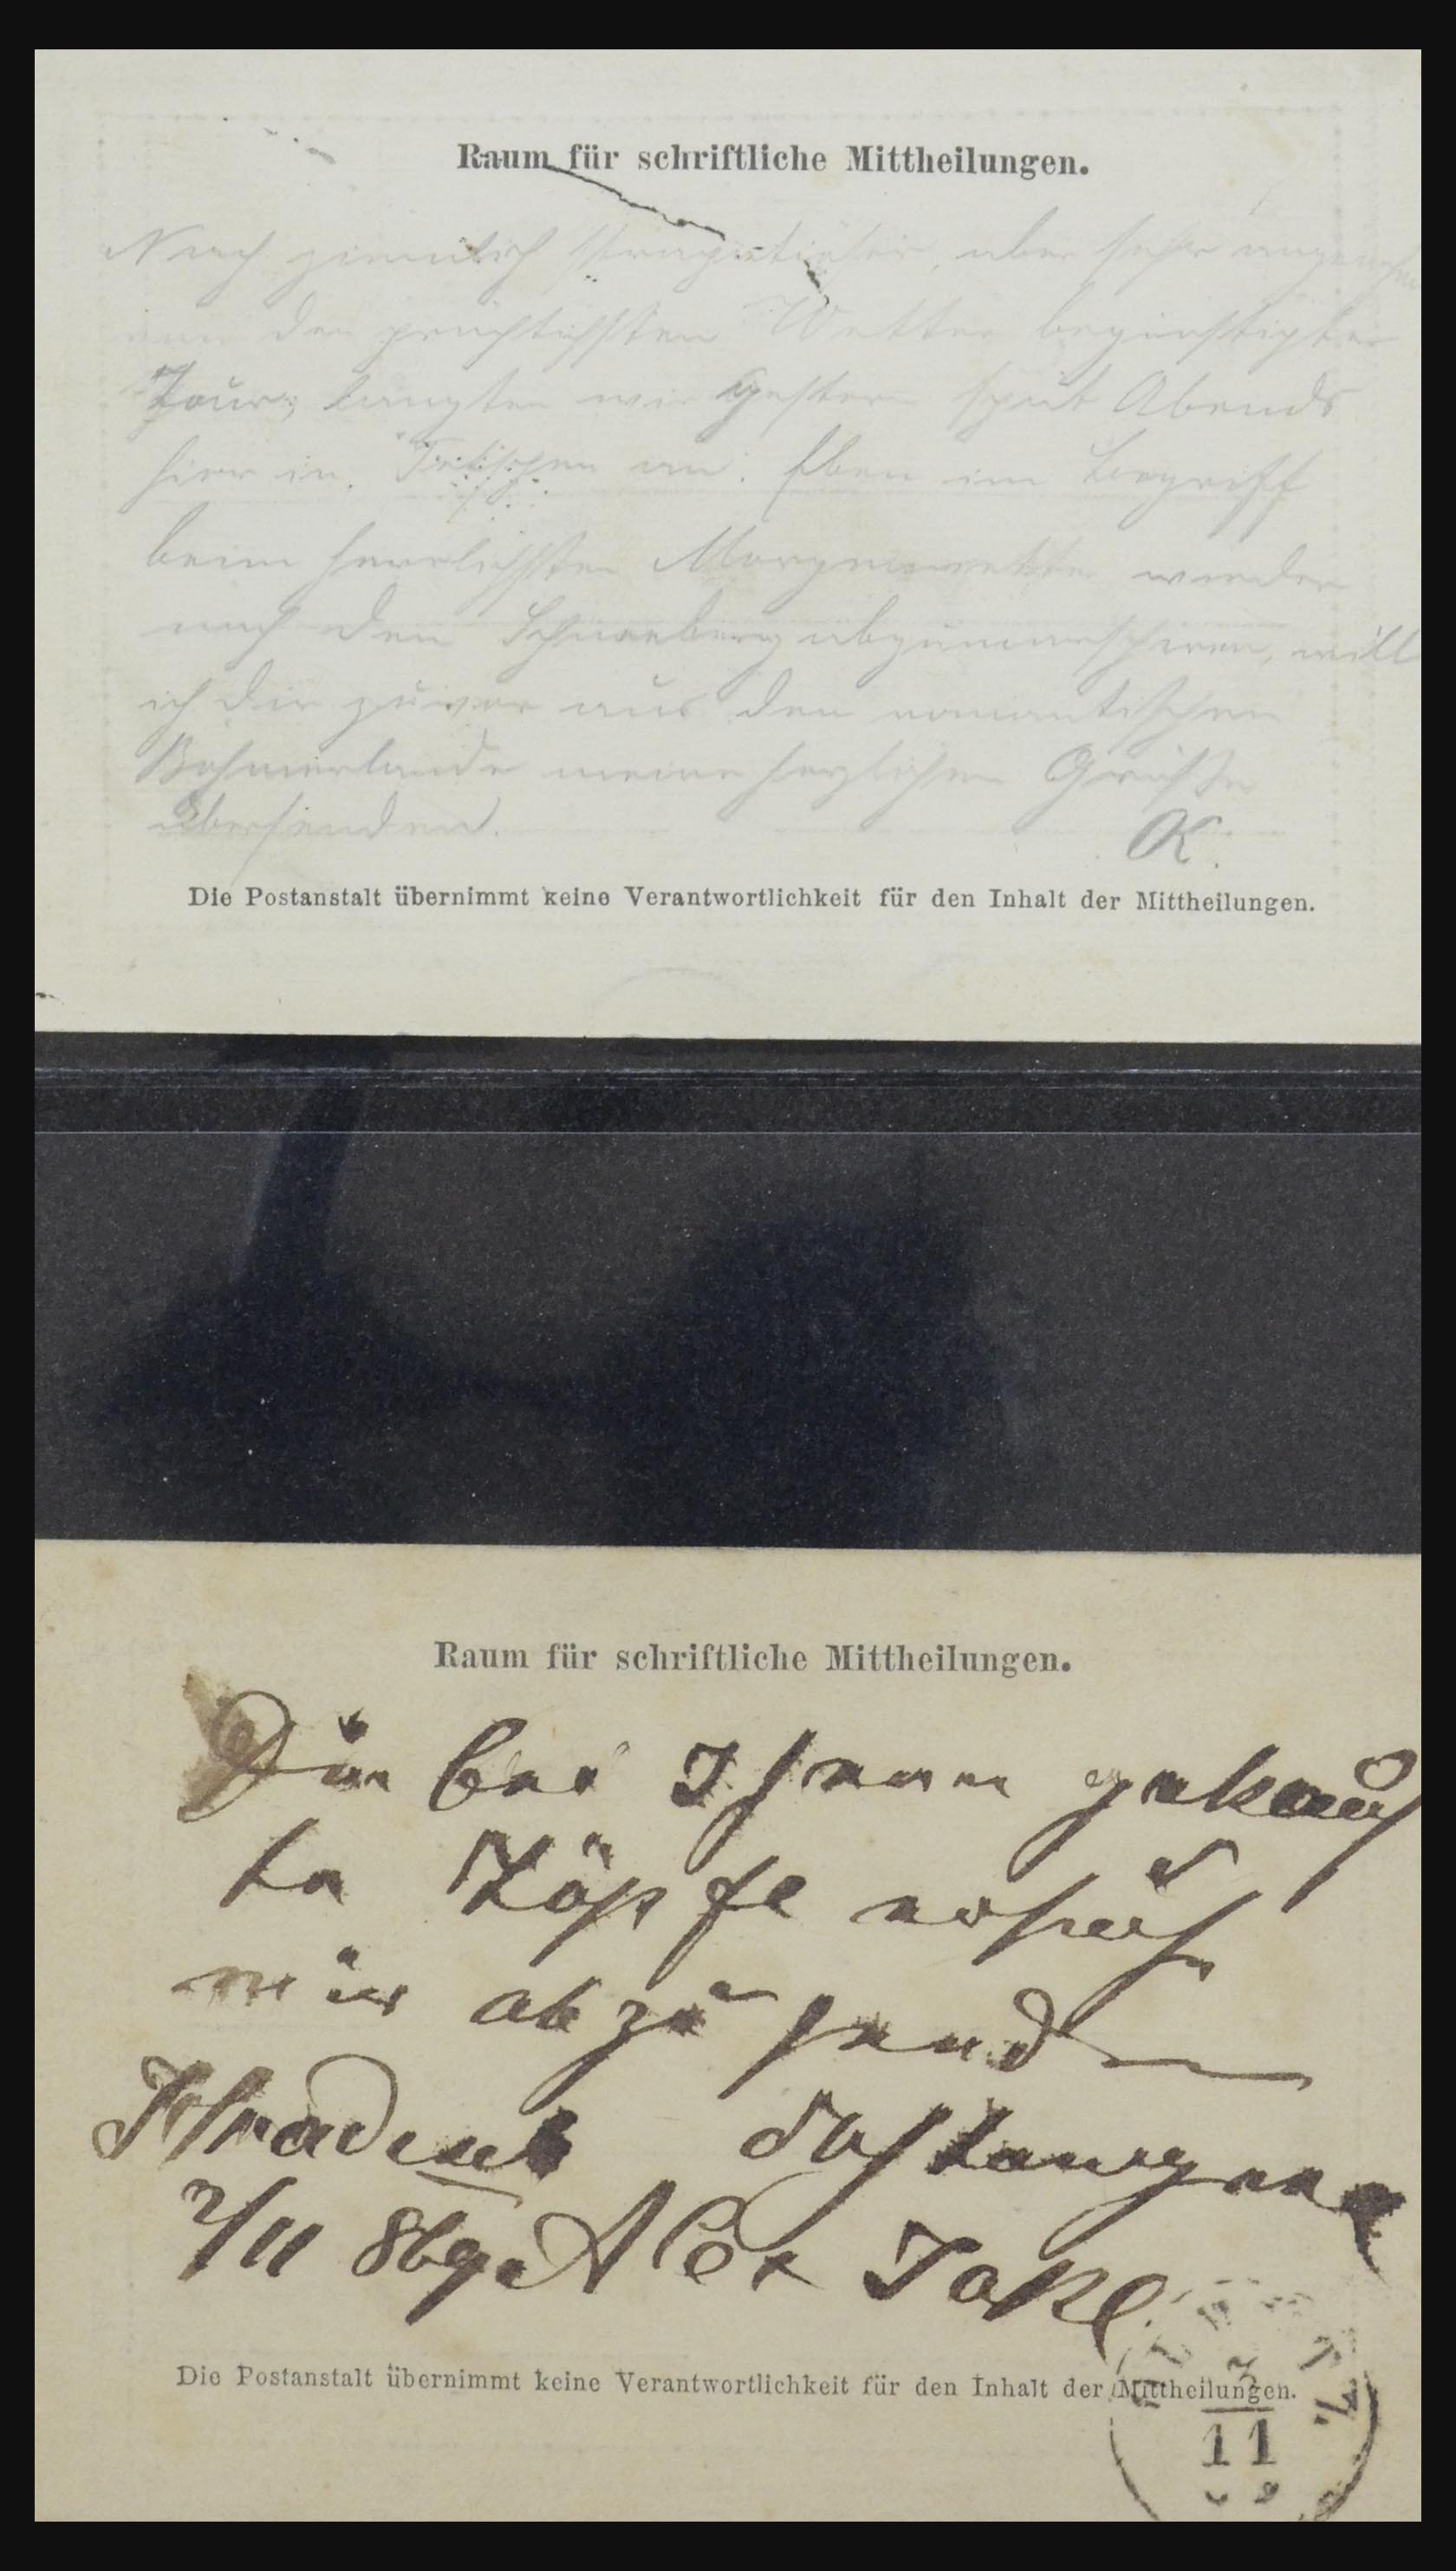 Raum für schriftliche Mittheilungen.
Nach ziemlich strapatiöser, aber sehr angenehm
von den prächtigsten Wetter begünstigter
Tour, langten wir gestern spät Abends
hier in Tetschen an. Eben im Begriff
beim herrlichsten Morgenwetter wieder
nach den Schneeberg abzumarschiren, will
ich Dir zuvor aus den romantischen
Böhmerlande meine herzlichen Grüße
übersenden. K.
Die Postanstalt übernimmt keine Verantwortlichkeit für den Inhalt der Mittheilungen.
Raum für schriftliche Mittheilungen.
Die bei Ihnen gekauf
te Töpfe ersuche
mir abzusenden
Hradek
2/11 869 Alex
Die Postanstalt übernimmt keine Verantwortlichkeit für den Inhalt der Mittheilungen.
3
11